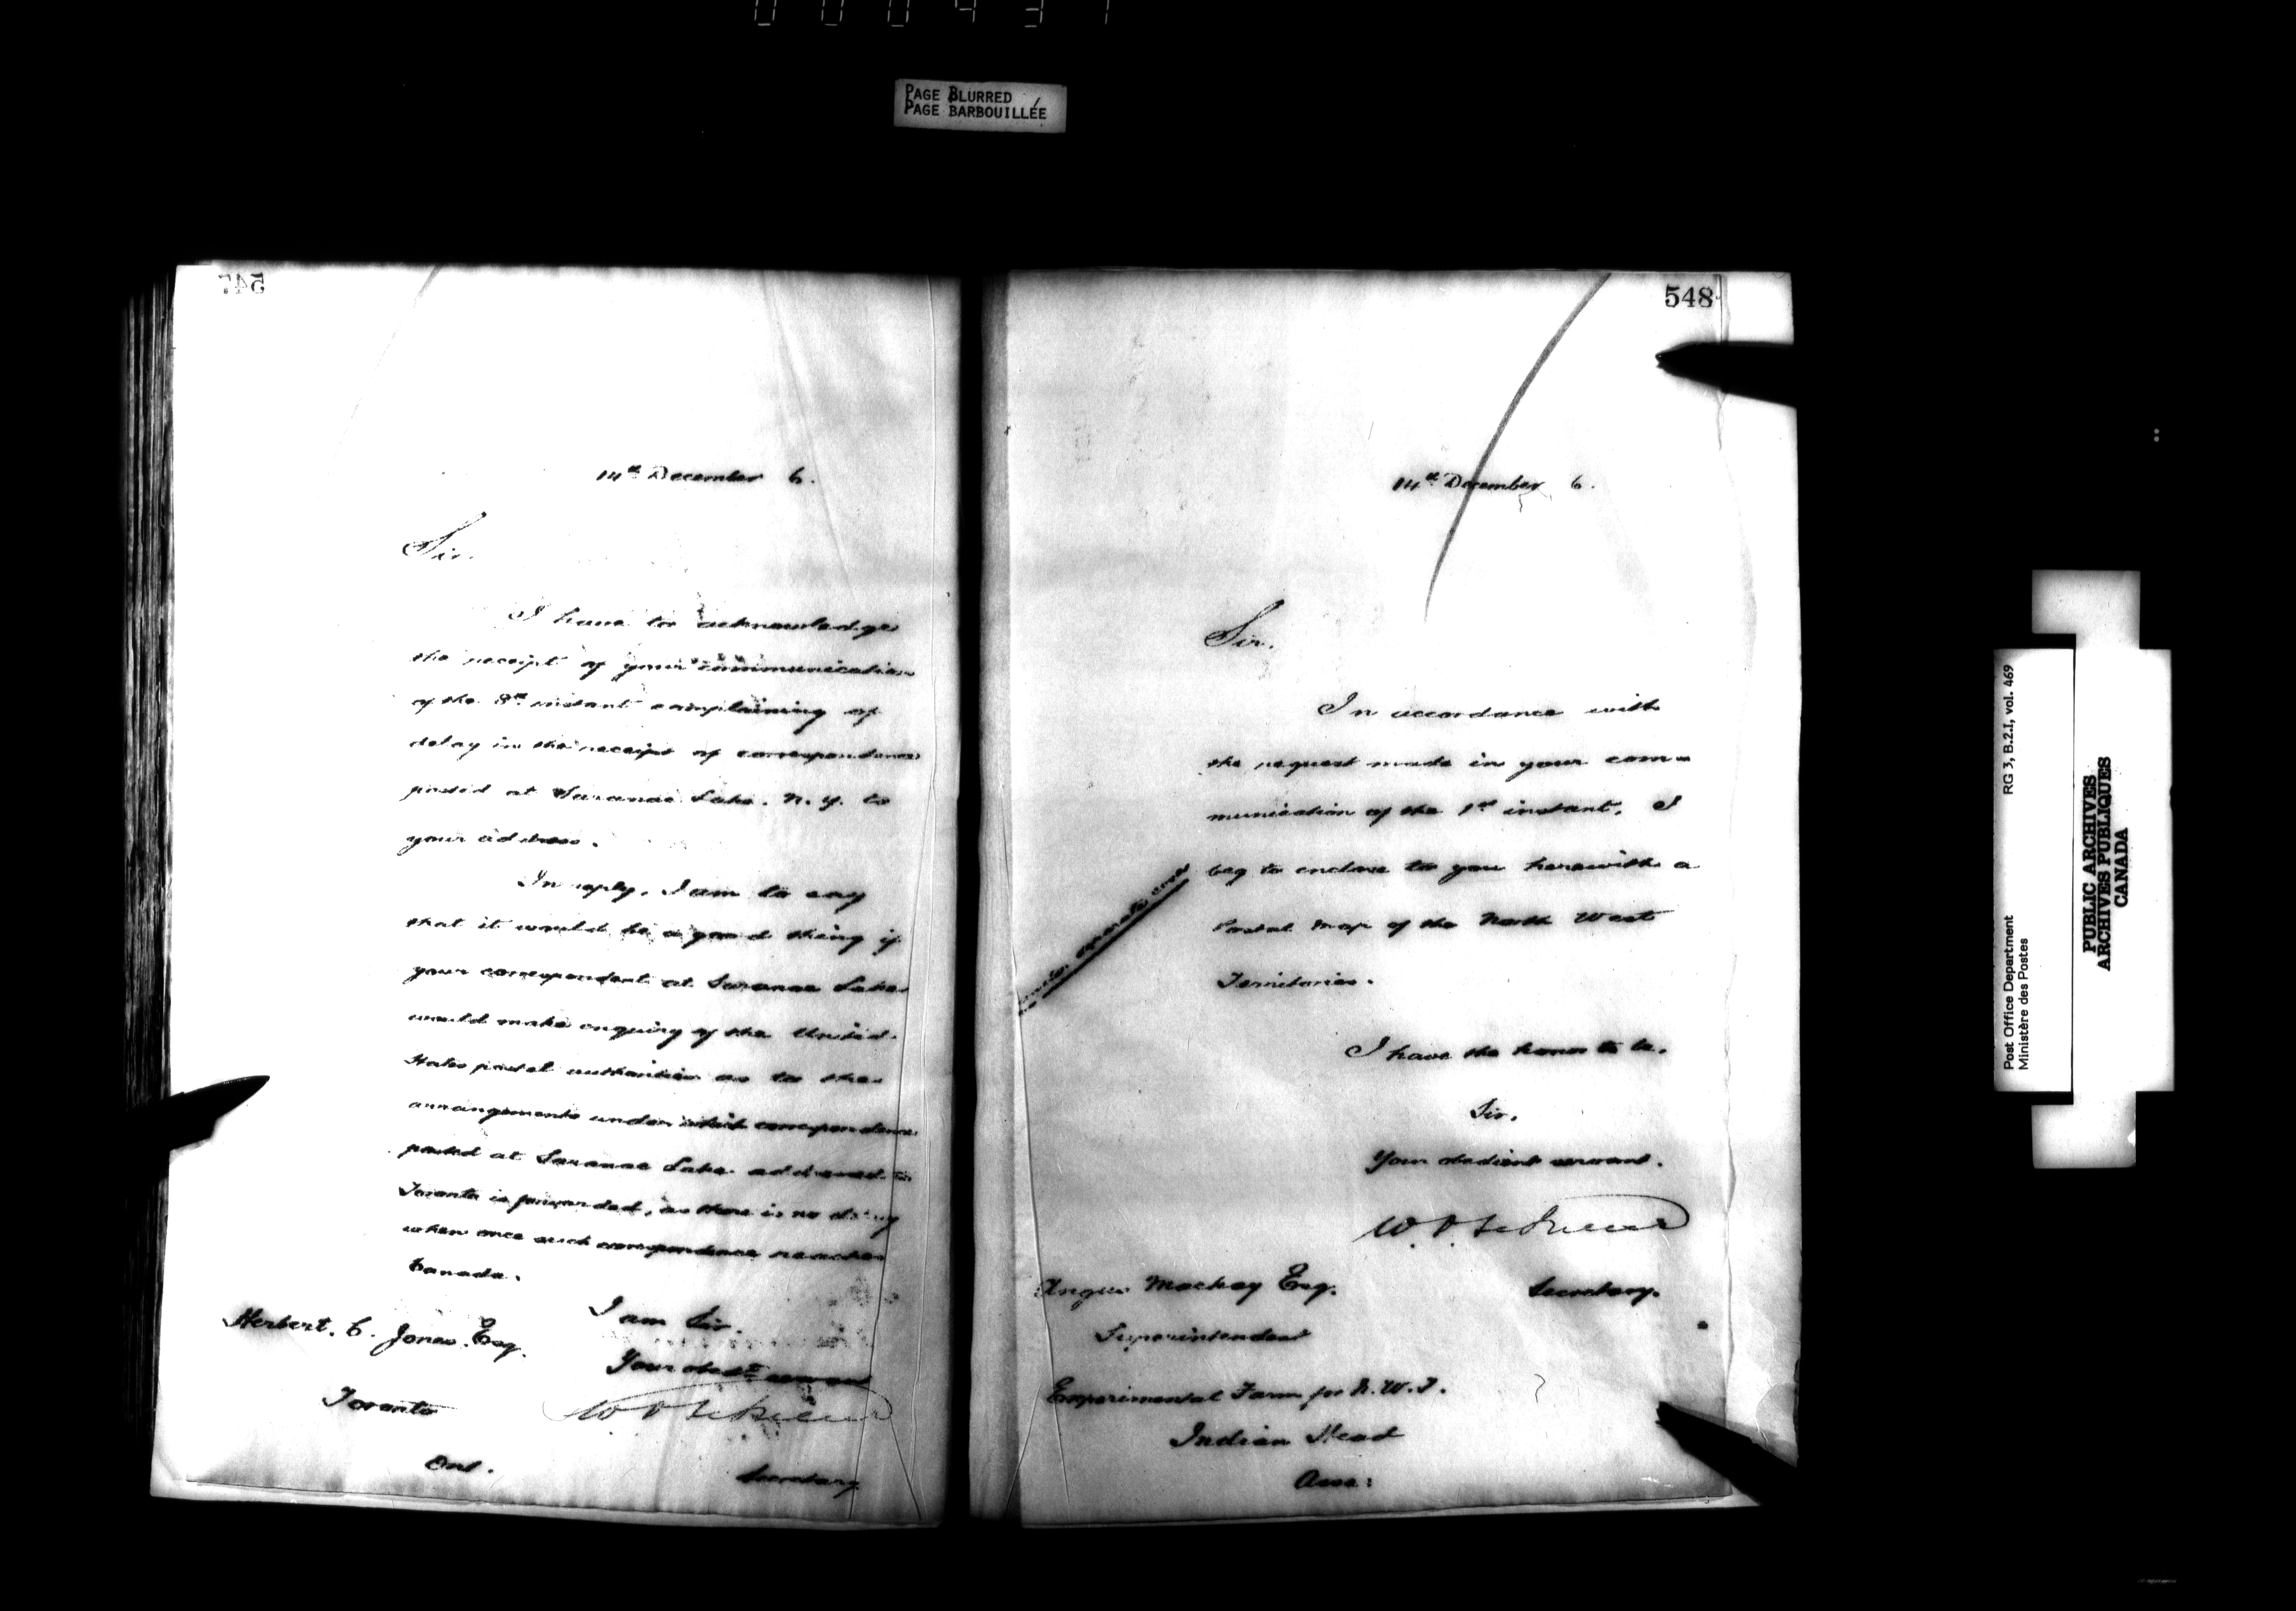 PAGE BLURRED
PAGE BARBOUILLÉE
547
14th December 6.
Sir.
I have to acknowledge
the receipt of your communication
of the 8th instant complaining of
delay in the receipt of correspondence
posted at Saranac Lake. N.Y. to
your address.
In reply, I am to say
that it would be a good thing if
your correspondent at Saranac Lake
would make enquiry of the United
States postal authorities as to the
arrangements under which correspondence
posted at Saranac Lake addressed to
Toronto is forwarded, as there is no delay
when once such correspondence reaches
Canada.
I am Sir.
Your obedt servant
Secretary
Herbert. C. Jones. Esq.
Toronto
Ont.
548
14th December 6.
Sir.
In accordance with
the request made in your com-
munication of the 1st instant, I
beg to enclose to you herewith a
Postal Map of the North West
Territories.
under separate cover
I have the honor to be.
Sir.
Your obedient servant.
Secretary.
Angus Mackay Esq.
Superintendent
Experimental Farm for N.W.T.
Indian Head
Assa:
RG 3, B.2.I, vol. 469
Post Office Department
Ministère des Postes
PUBLIC ARCHIVES
ARCHIVES PUBLIQUES
CANADA